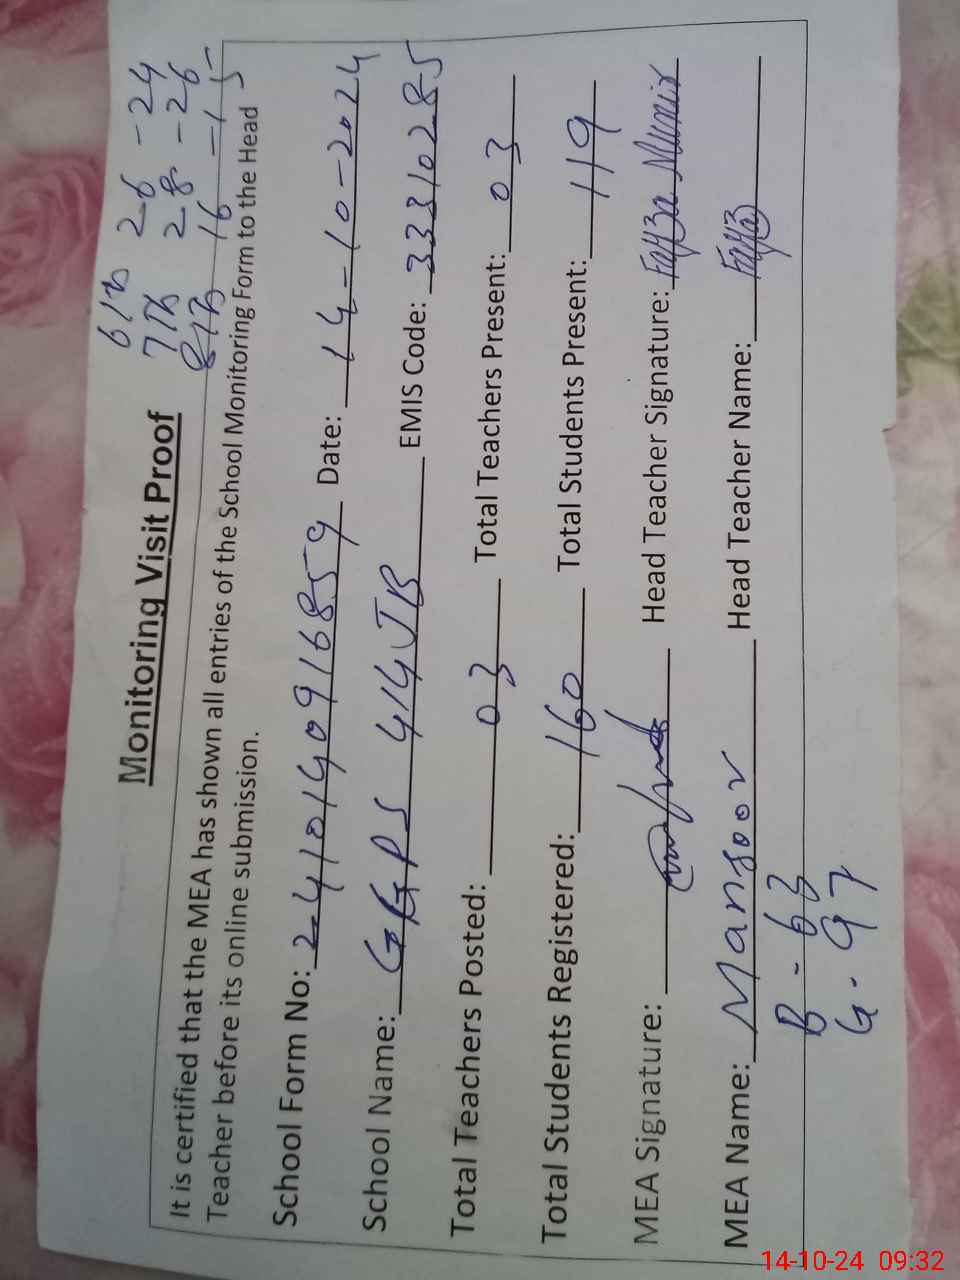 6th 26 - 24
7th 28 - 26
8th 16 - 15
Monitoring Visit Proof
It is certified that the MEA has shown all entries of the School Monitoring Form to the Head
Teacher before its online submission.
School Form No: 2-41014091685 9 Date: 14-10-2024
School Name: GGPS 414 JB EMIS Code: 33310285
Total Teachers Posted: 03 Total Teachers Present: 03
Total Students Registered: 160 Total Students Present: 119
MEA Signature: Head Teacher Signature: Fayza Munir
MEA Name: Mansoor Head Teacher Name: Fayza
B - 63
G - 97
14-10-24 09:32